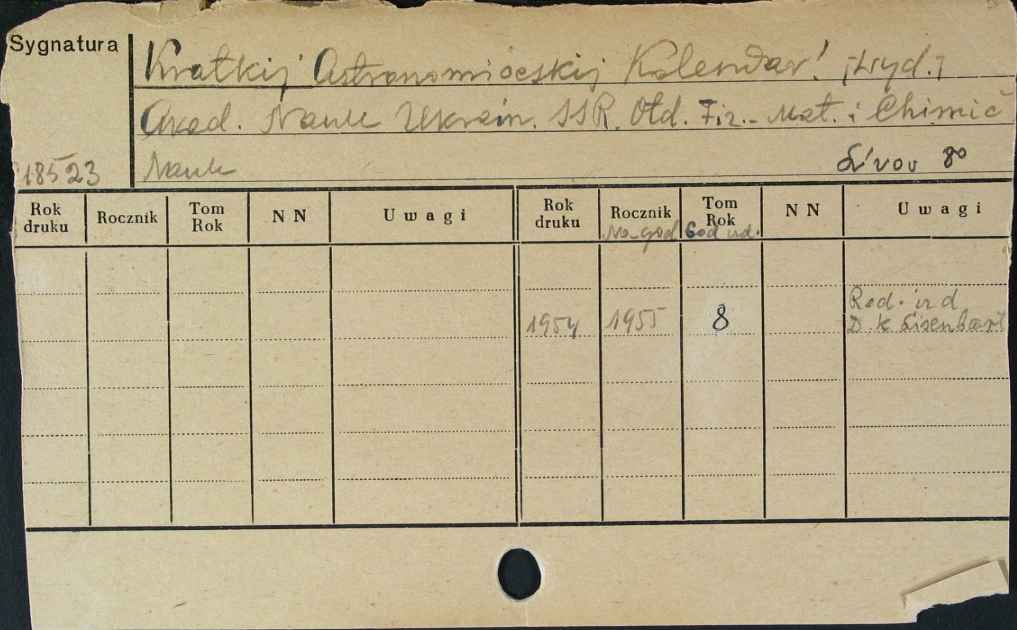 Sygnatura
Kratkij Astronomičeskij Kalendar! [Wyd.]
Akad. Nauk Ukrain. SSR. Otd. Fiz.-Mat. i Chimič
Nauk L'vov 8°
18523
Rok druku Rocznik Tom Rok NN Uwagi Rok druku Rocznik Tom Rok NN Uwagi
Na god God izd.
1954 1955 8 Red. izd
D. K.